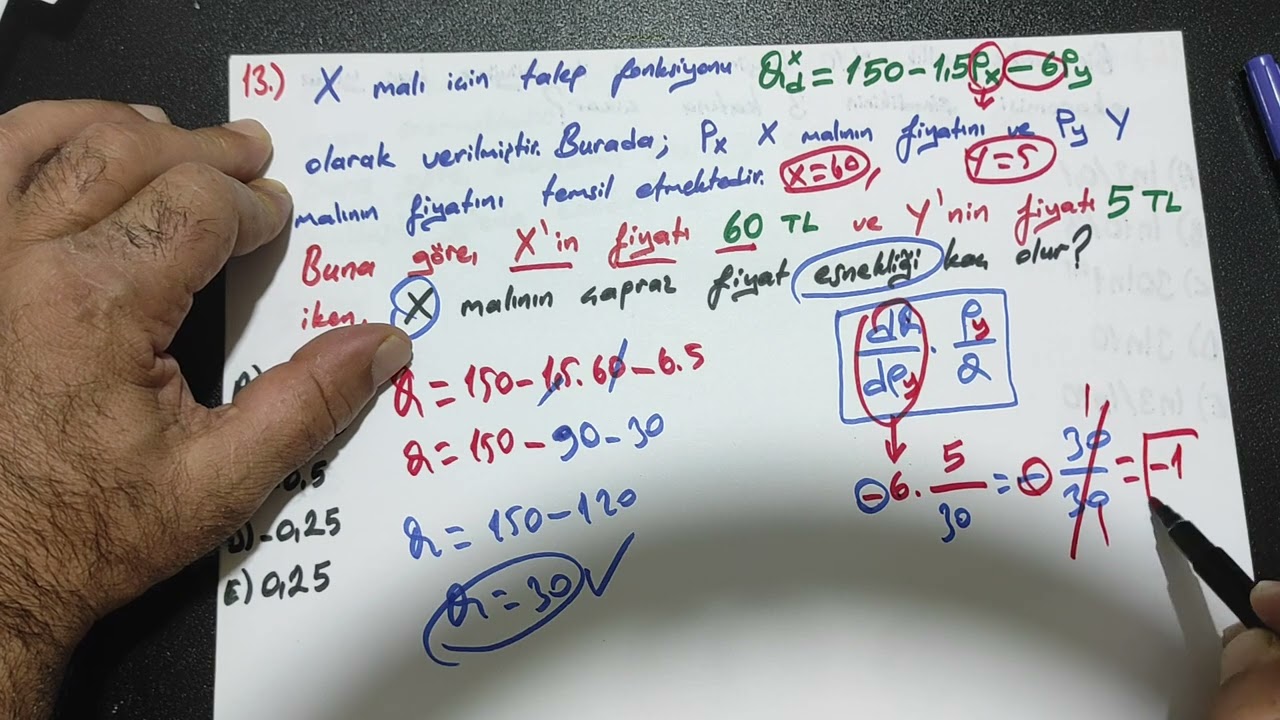 13.) X malı için talep fonksiyonu Qdˣ = 150 - 1,5Px - 6Py
olarak verilmiştir. Burada; Px X malının fiyatını ve Py Y
malının fiyatını temsil etmektedir. X=60, Y=5
Buna göre, X'in fiyatı 60 TL ve Y'nin fiyatı 5 TL
iken, X malının çapraz fiyat esnekliği kaç olur?
Q = 150 - 1,5.60 - 6.5
Q = 150 - 90 - 30
Q = 150 - 120
Q = 30 ✓
dQ/dPy . Py/Q
-6. 5/30 = - 30/30 = -1
0,5
D) -0,25
E) 0,25